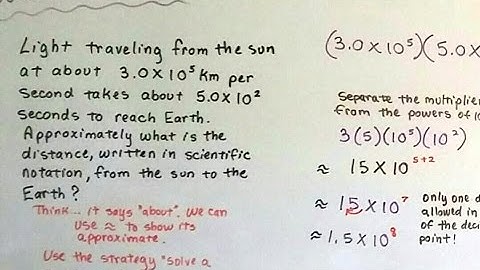 Light traveling from the sun
at about 3.0 x 10⁵ km per
second takes about 5.0 x 10²
seconds to reach Earth.
Approximately what is the
distance, written in scientific
notation, from the sun to the
Earth?
Think... it says "about". We can
use ≈ to show its
approximate.
Use the strategy "solve a
(3.0 x 10⁵)(5.0 x
Separate the multiplier
from the powers of 10
3(5)(10⁵)(10²)
≈ 15 x 10⁵⁺²
≈ 15 x 10⁷
only one d
allowed in
of the dec
point!
≈ 1.5 x 10⁸